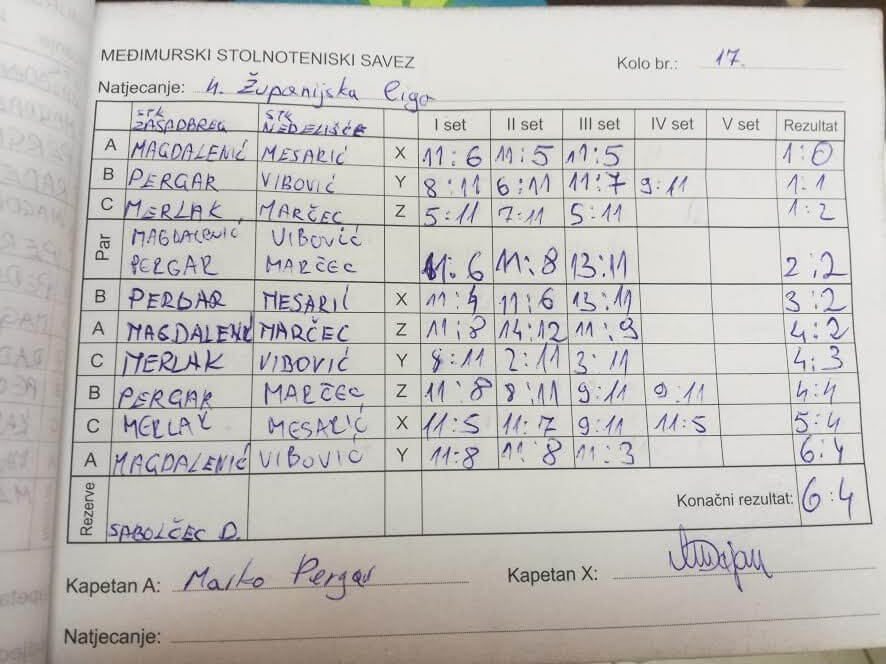 MEĐIMURSKI STOLNOTENISKI SAVEZ Kolo br.: 17.
Natjecanje: 4. Županijska liga
STK ZASADBREG STK NEDELIŠĆE I set II set III set IV set V set Rezultat
A MAGDALENIĆ MESARIĆ X 11:6 11:5 11:5 1:0
B PERGAR VIBOVIĆ Y 8:11 6:11 11:7 9:11 1:1
C MERLAK MARČEC Z 5:11 7:11 5:11 1:2
Par MAGDALENIĆ VIBOVIĆ
PERGAR MARČEC 11:6 11:8 13:11 2:2
B PERGAR MESARIĆ X 11:4 11:6 13:11 3:2
A MAGDALENIĆ MARČEC Z 11:8 14:12 11:9 4:2
C MERLAK VIBOVIĆ Y 8:11 2:11 3:11 4:3
B PERGAR MARČEC Z 11:8 8:11 9:11 9:11 4:4
C MERLAK MESARIĆ X 11:5 11:7 9:11 11:5 5:4
A MAGDALENIĆ VIBOVIĆ Y 11:8 11:8 11:3 6:4
Rezerve SABOLČEC D. Konačni rezultat: 6:4
Kapetan A: Marko Pergar Kapetan X:
Natjecanje: